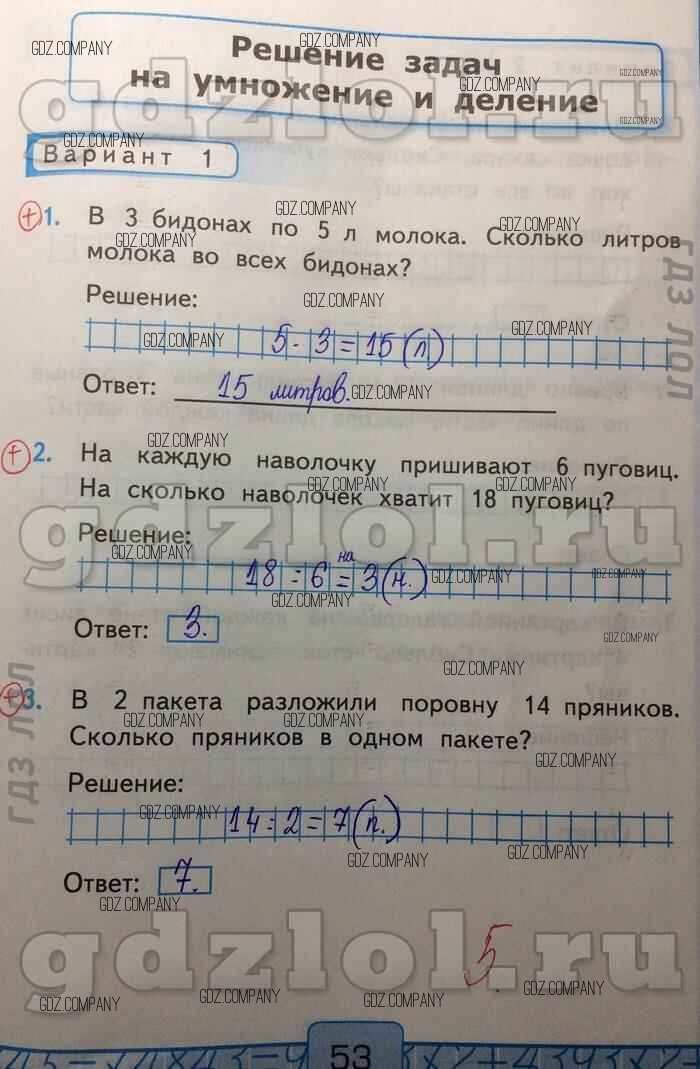 Решение задач
на умножение и деление
Вариант 1
+ 1. В 3 бидонах по 5 л молока. Сколько литров
молока во всех бидонах?
Решение:
5 · 3 = 15 (л)
Ответ: 15 литров.
+ 2. На каждую наволочку пришивают 6 пуговиц.
На сколько наволочек хватит 18 пуговиц?
Решение:
на
18 : 6 = 3 (н.)
Ответ: 3.
+ 3. В 2 пакета разложили поровну 14 пряников.
Сколько пряников в одном пакете?
Решение:
14 : 2 = 7 (п.)
Ответ: 7.
5.
53
gdzlol.ru
gdzlol.ru
gdzlol.ru
ГДЗ ЛОЛ
ГДЗ ЛОЛ
GDZ.COMPANY